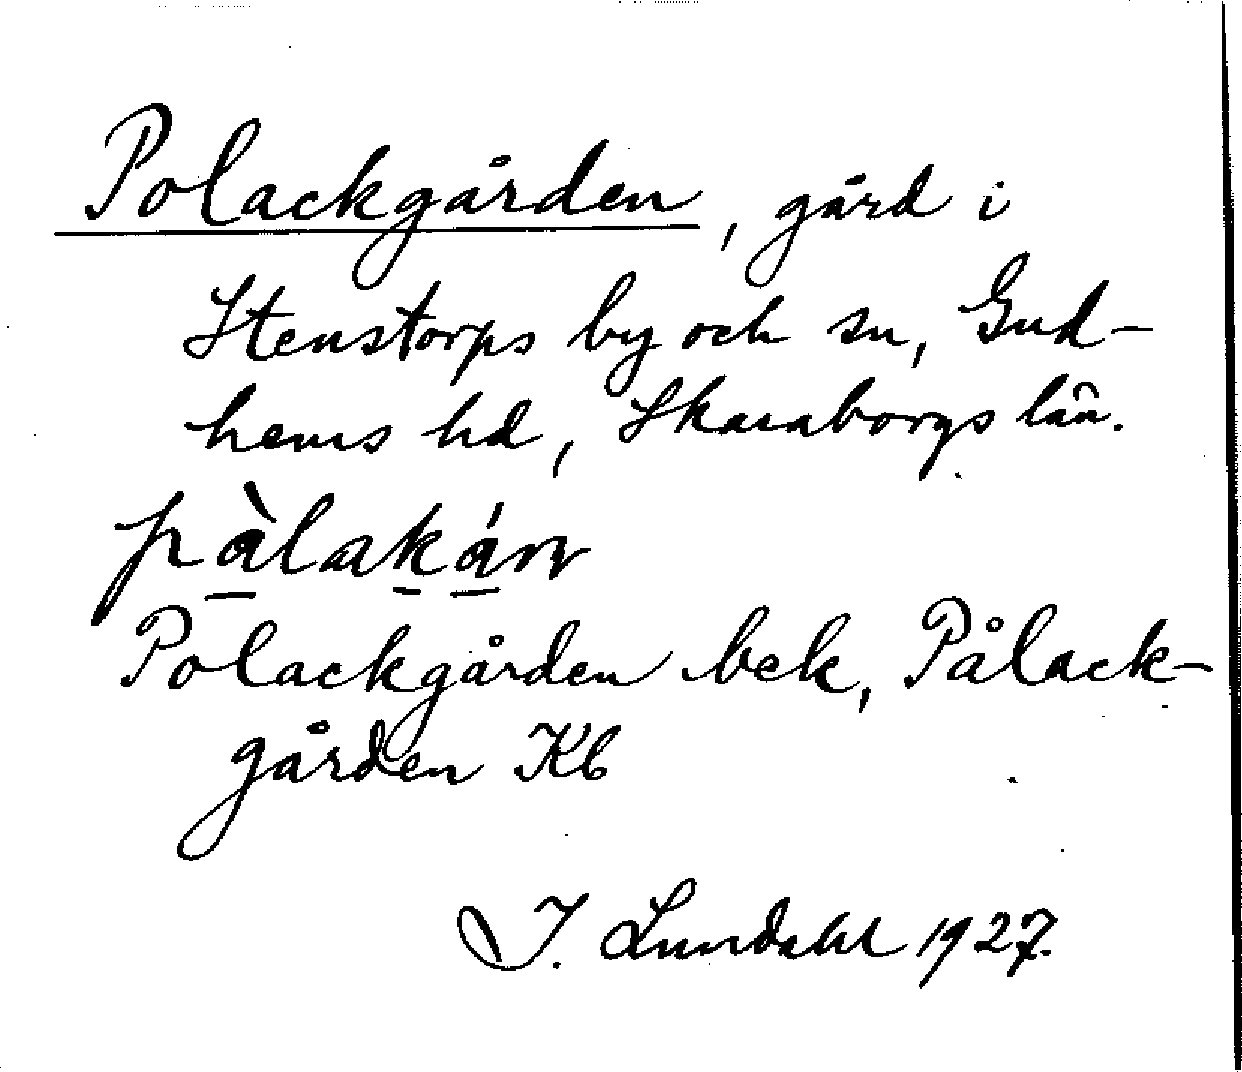 Polackgården, gård i
Stenstorps by och sn, Gud-
hems hd, Skaraborgs län.
pàlakáṇ
Polackgården bek, Pålack-
gården Kb
I. Lundahl 1927.